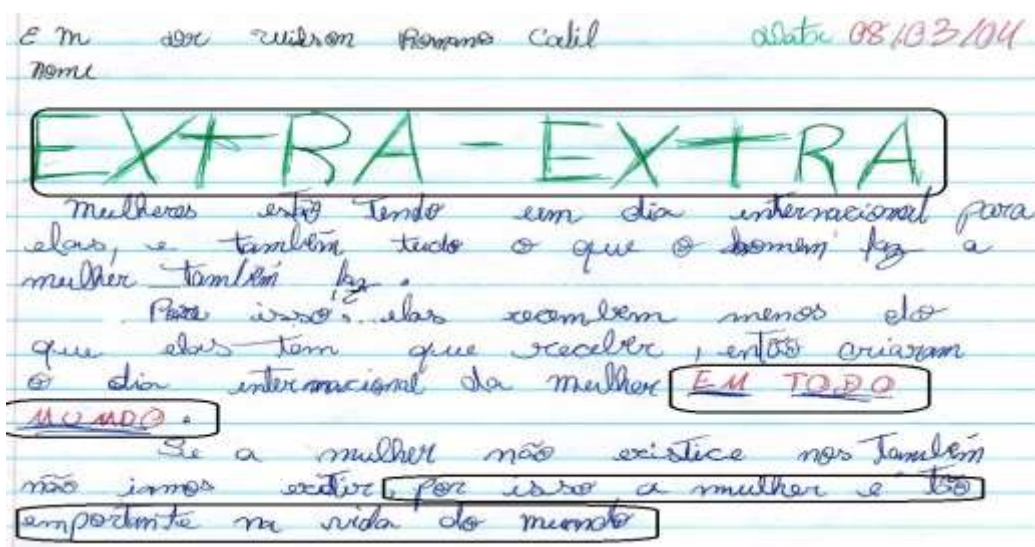 E M dor Wilson Romano Calil Data 08/03/04
nome
EXTRA - EXTRA
Mulheres estão tendo um dia internacional para
elas, e também tudo o que o homem faz a
mulher também faz.
Para isso, elas recembem menos do
que elas tem que receber, então criaram
o dia internacional da mulher EM TODO
MUMDO.
Se a mulher não existice nos também
não irmos exitir, por isso a mulher é tão
emportante na vida do mundo